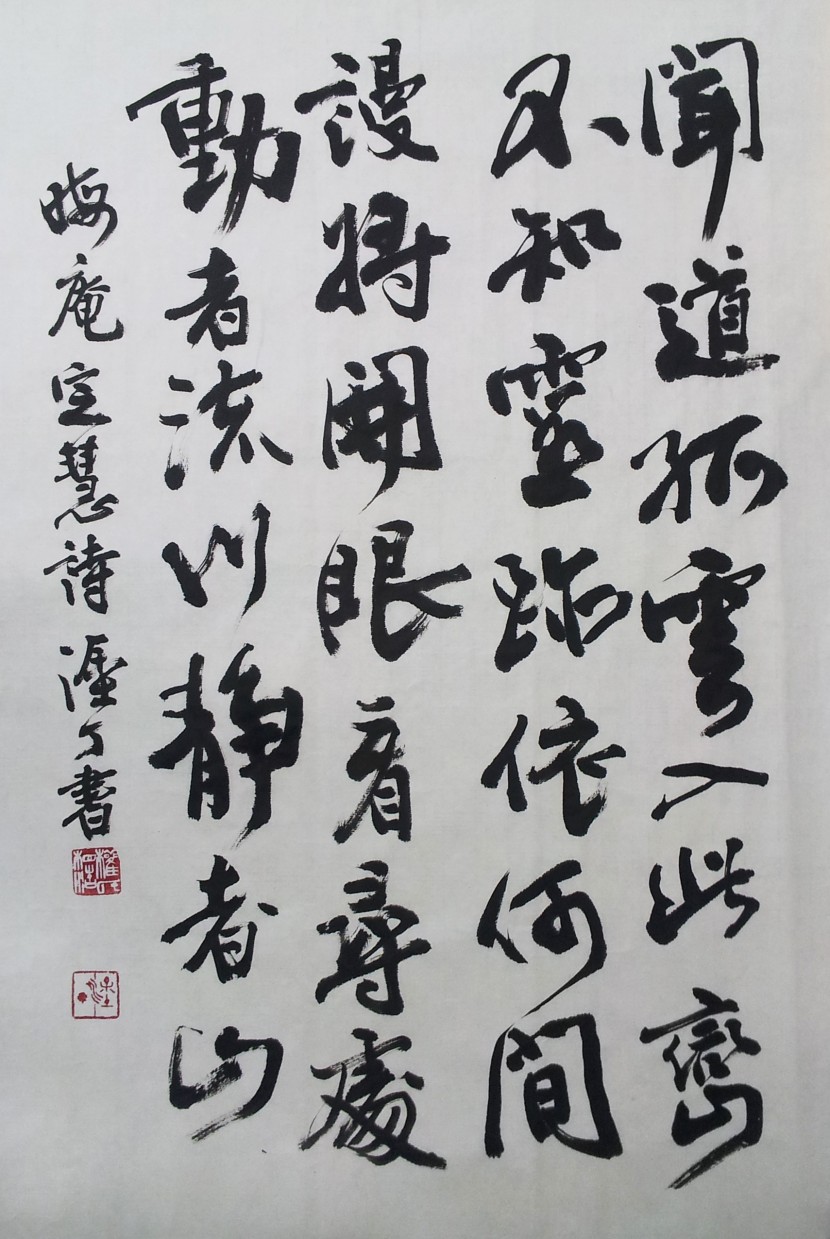 聞道孤雲入此巒
不知靈跡依何間
謾將開眼看尋處
動者流川靜者山
晦庵定慧詩 書